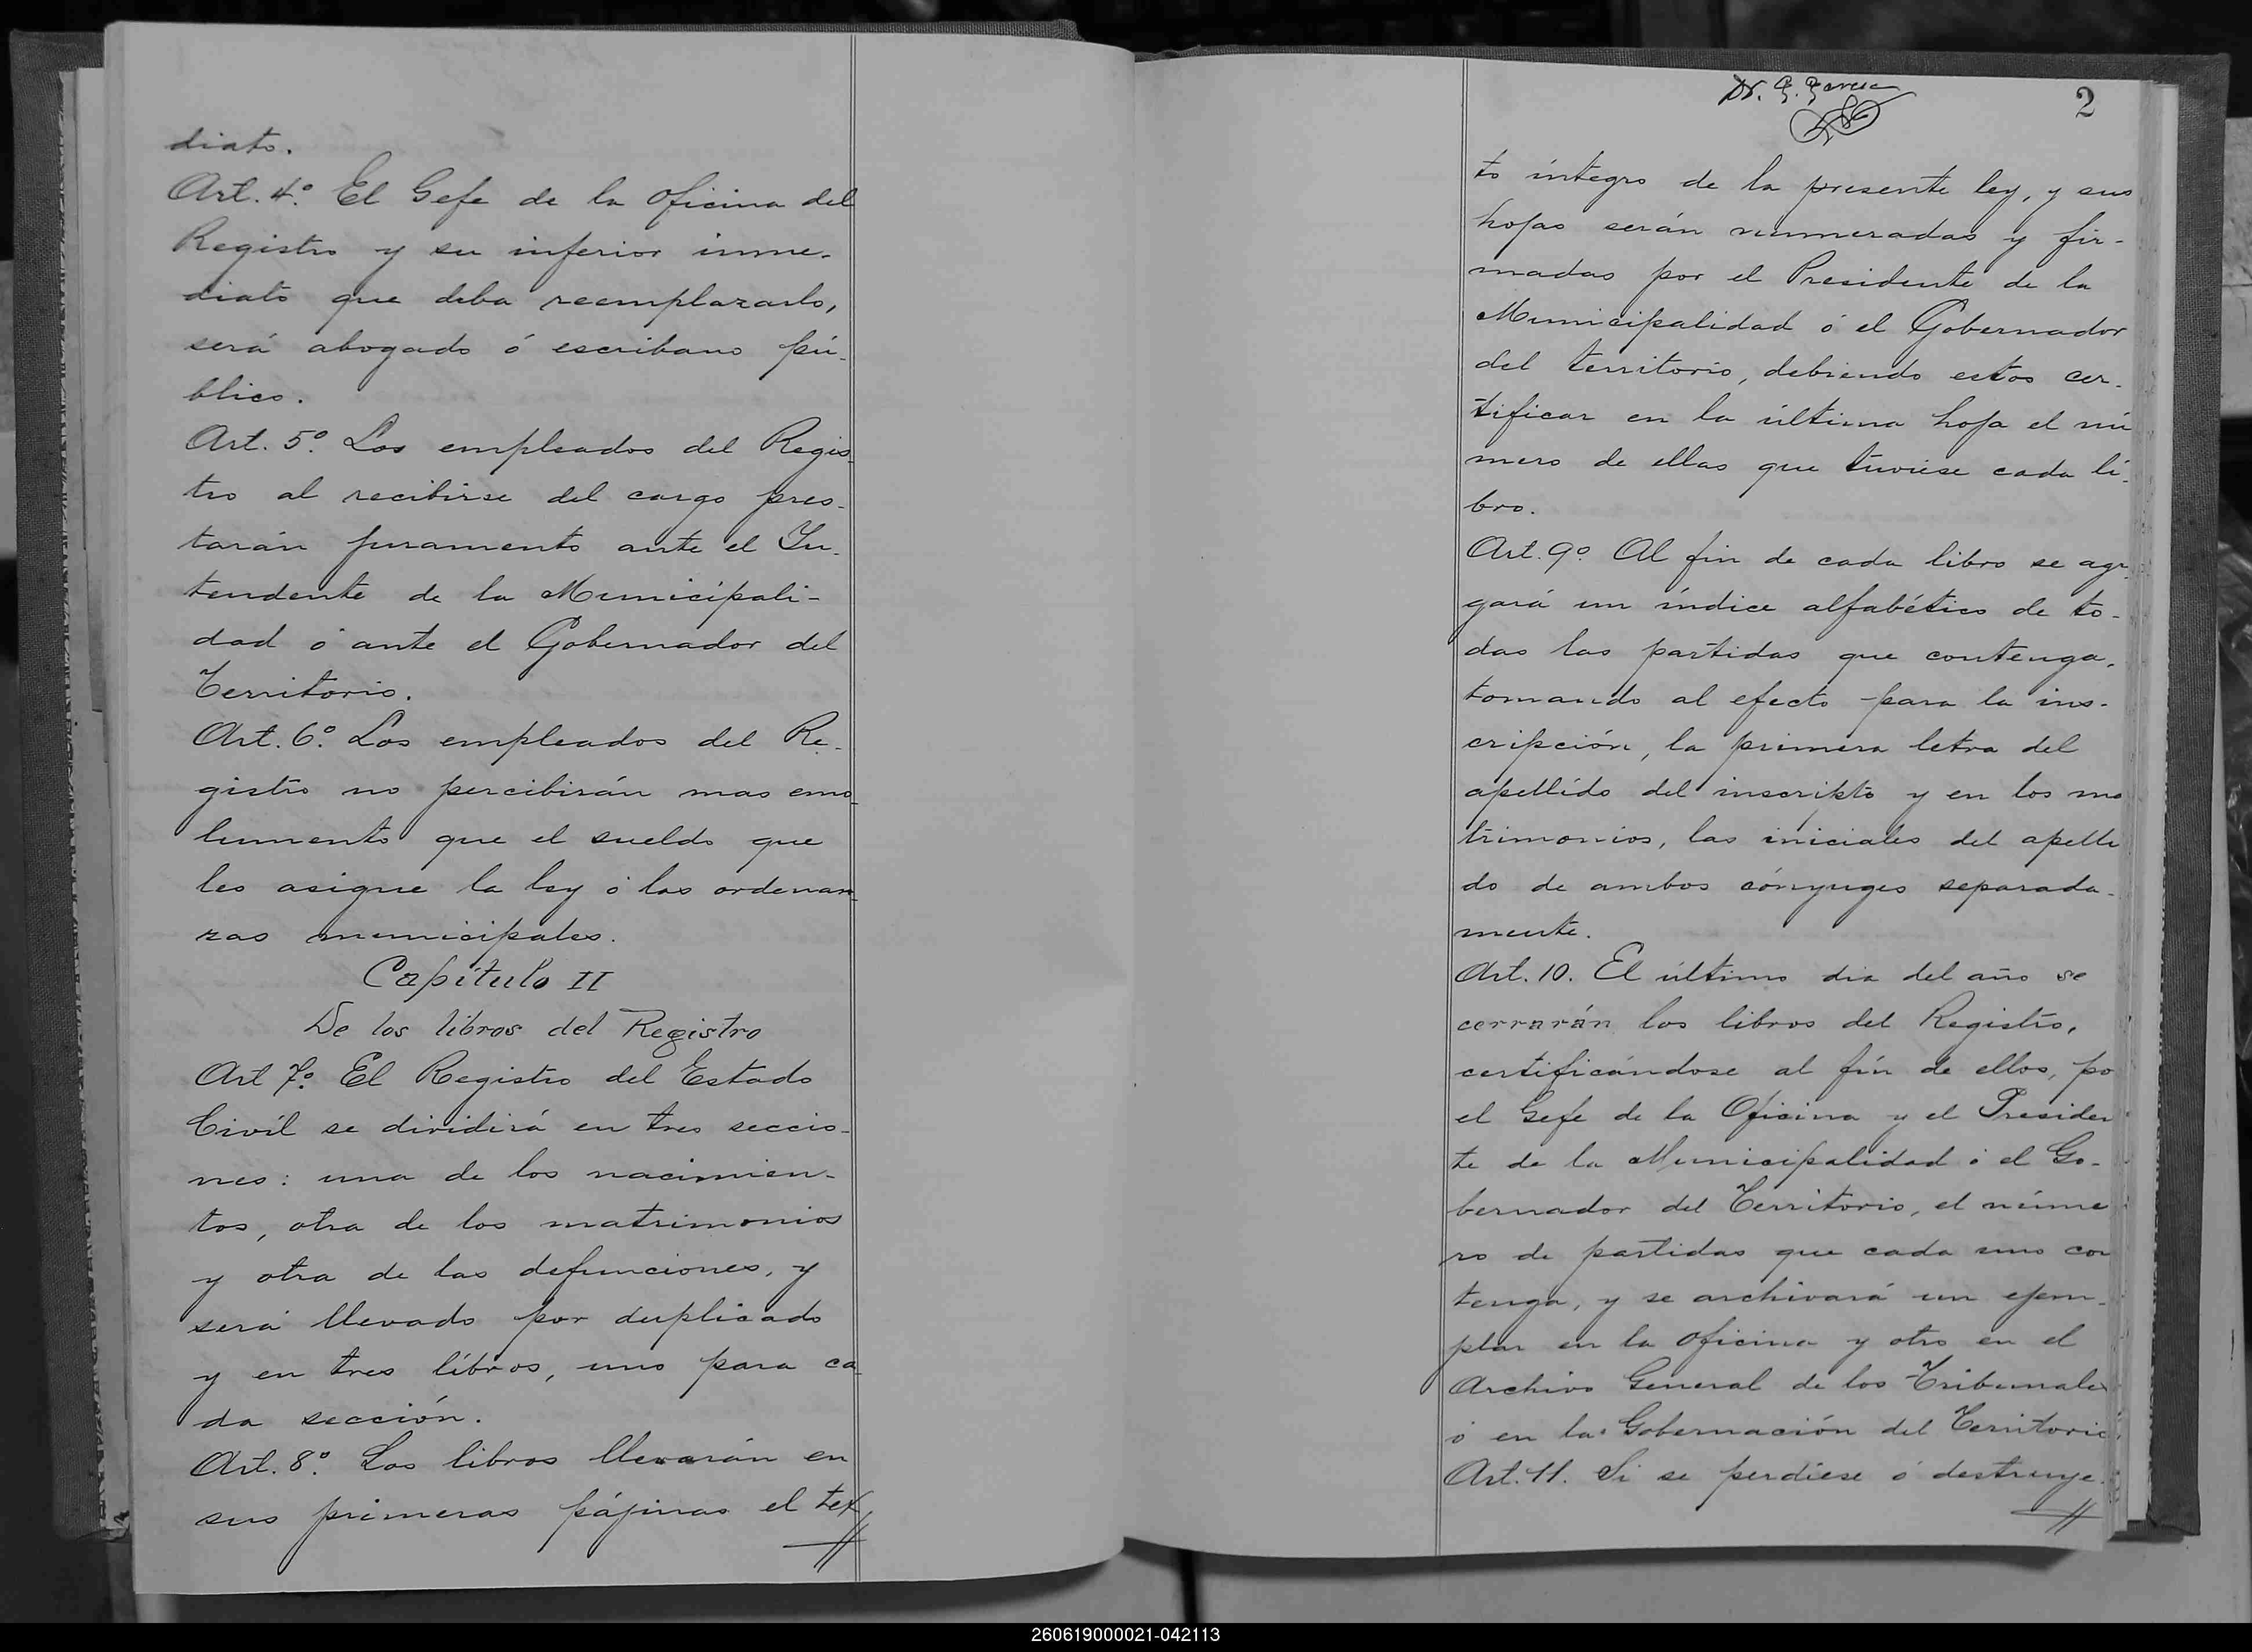 diato.
Art. 4.º El Gefe de la Oficina del
Registro y su inferior inme-
diato que deba reemplazarlo,
será abogado ó escribano pú-
blico.
Art. 5.º Los empleados del Regis-
tro al recibirse del cargo pres-
tarán juramento ante el In-
tendente de la Municipali-
dad ó ante el Gobernador del
Territorio.
Art. 6.º Los empleados del Re-
gistro no percibirán mas emo-
lumento que el sueldo que
les asigne la ley ó las ordenan-
zas municipales.
Capítulo II
De los libros del Registro
Art 7.º El Registro del Estado
Civíl se dividirá en tres seccio-
nes: una de los nacimien-
tos, otra de los matrimonios
y otra de las defunciones, y
será llevado por duplicado
y en tres líbros, uno para ca-
da sección.
Art. 8.º Los libros llevarán en
sus primeras págínas el tex
Dr. G. Garcia
2
to íntegro de la presente ley, y sus
hojas serán numeradas y fir-
madas por el Presidente de la
Municipalidad ó el Gobernador
del territorio, debiendo estos cer-
tificar en la última hoja el nú
mero de ellas que tuviese cada li-
bro.
Art. 9º Al fin de cada libro se agre
gará un índice alfabético de to-
das las partidas que contenga,
tomando al efecto para la ins-
cripción, la primera letra del
apellído del inscripto y en los ma
trimonios, las iniciales del apelli
do de ambos cónyuges separada-
mente.
Art. 10. El último dia del año se
cerrarán los libros del Registro,
certificándose al fín de ellos, po
el Gefe de la Oficina y el Presiden
te de la Municipalidad ó el Go-
bernador del Territorio, el núme
ro de partidas que cada uno con
tenga, y se archivará un ejem-
plar en la oficina y otro en el
Archivo General de los Tribunales
ó en la Gobernación del Territorio.
Art. 11. Si se perdiese ó destruye
260619000021-042113